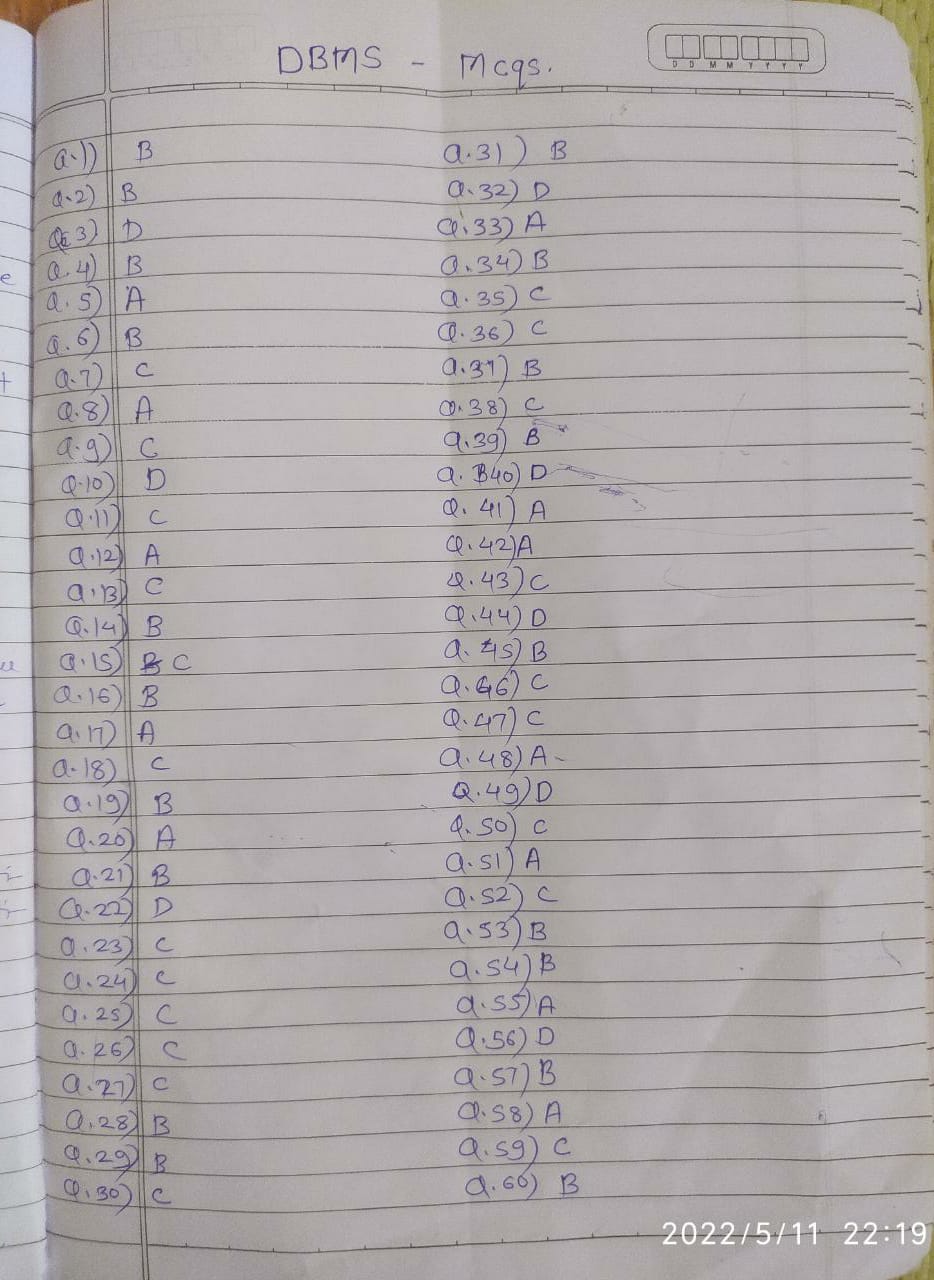 DBMS - Mcqs.
D D M M Y Y Y Y
Q.1) B
Q.2) B
Q.3) D
Q.4) B
Q.5) A
Q.6) B
Q.7) C
Q.8) A
Q.9) C
Q.10) D
Q.11) C
Q.12) A
Q.13) C
Q.14) B
Q.15) C
Q.16) B
Q.17) A
Q.18) C
Q.19) B
Q.20) A
Q.21) B
Q.22) D
Q.23) C
Q.24) C
Q.25) C
Q.26) C
Q.27) C
Q.28) B
Q.29) B
Q.30) C
Q.31) B
Q.32) D
Q.33) A
Q.34) B
Q.35) C
Q.36) C
Q.37) B
Q.38) C
Q.39) B
Q.40) D
Q.41) A
Q.42) A
Q.43) C
Q.44) D
Q.45) B
Q.46) C
Q.47) C
Q.48) A
Q.49) D
Q.50) C
Q.51) A
Q.52) C
Q.53) B
Q.54) B
Q.55) A
Q.56) D
Q.57) B
Q.58) A
Q.59) C
Q.60) B
2022/5/11 22:19